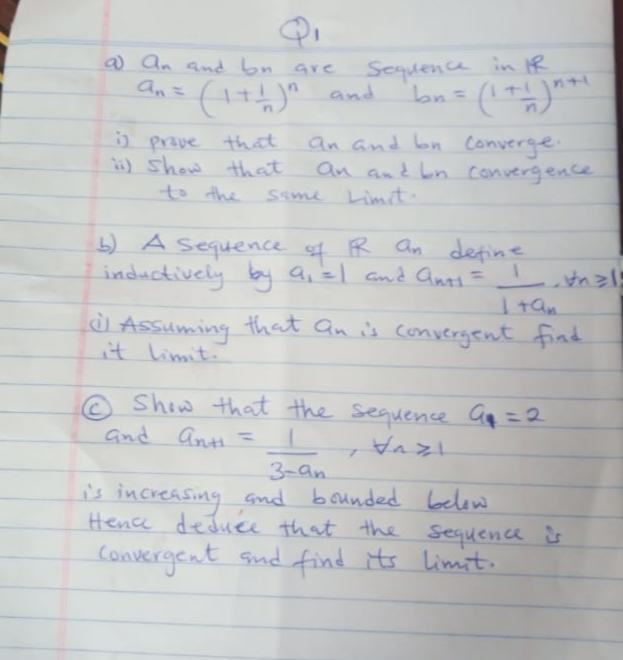 Q1
a) an and bn are sequence in ℝ
an = (1+1/n)^n and bn = (1+1/n)^n+1
i) prove that an and bn converge.
ii) Show that an and bn convergence
to the same Limit.
b) A sequence of ℝ an define
inductively by a1=1 and an+1 = 1/(1+an), ∀n≥1
(i) Assuming that an is convergent find
it limit.
(c) Show that the sequence a1=2
and an+1 = 1/(3-an), ∀n≥1
is increasing and bounded below
Hence deduce that the sequence is
convergent and find its limit.